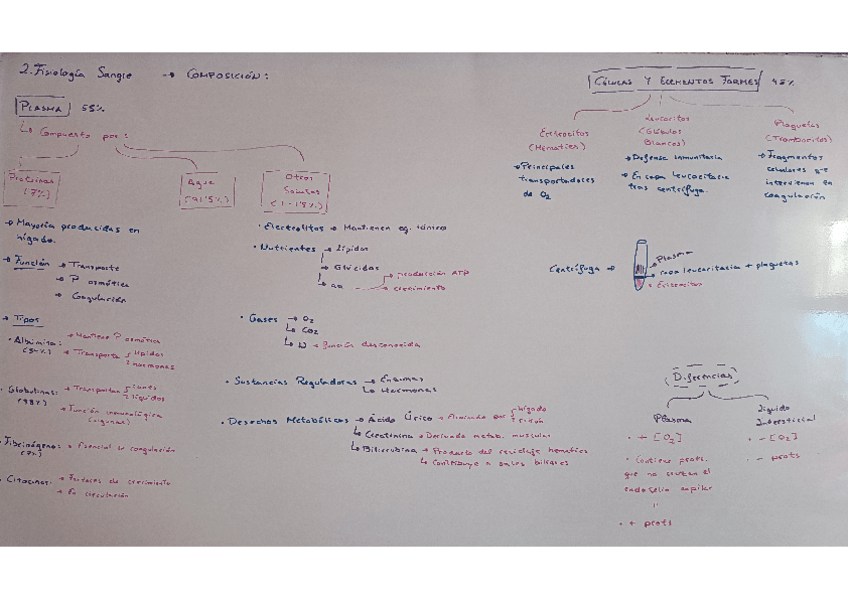 2. Fisiología Sangre → COMPOSICIÓN:
PLASMA 55%
↳ Compuesto por:
Proteínas
(7%)
Agua
(91'5%)
Otros
Solutos
(1-1'5%)
→ Mayoría producidas en
hígado.
→ Función → Transporte
→ P osmótica
→ Coagulación
→ Tipos
• Albúmina: → Mantiene P osmótica
(54%) → Transporta lípidos
hormonas
• Globulinas: → Transportan iones
(38%) lípidos
→ Función inmunológica
(algunas)
• Fibrinógeno: → Esencial en coagulación
(7%)
• Citocinas: → Factores de crecimiento
→ En circulación
• Electrolitos → Mantienen eq. iónico
• Nutrientes → Lípidos
→ Glúcidos
→ aa → producción ATP
→ crecimiento
• Gases → O2
↳ CO2
↳ N → función desconocida
• Sustancias Reguladoras → Enzimas
↳ Hormonas
• Desechos Metabólicos → Ácido Úrico → Eliminado por hígado
riñón
↳ Creatinina → Derivado metab. muscular
↳ Bilirrubina → Producto del reciclaje hematíes
↳ Contribuye a sales biliares
CÉLULAS Y ELEMENTOS FORMES 45%
Eritrocitos
(Hematíes)
→ Principales
transportadores
de O2
Leucocitos
(Glóbulos
Blancos)
→ Defensa inmunitaria
→ En capa leucocitaria
tras centrífuga.
Plaquetas
(Trombocitos)
→ Fragmentos
celulares que
intervienen en
coagulación
Centrífuga →
→ Plasma
→ capa leucocitaria + plaquetas
→ Eritrocitos
Diferencias
Plasma
• + [O2]
• Contiene prots.
que no cruzan el
endotelio capilar
• + prots
Líquido
Intersticial
• - [O2]
• - prots